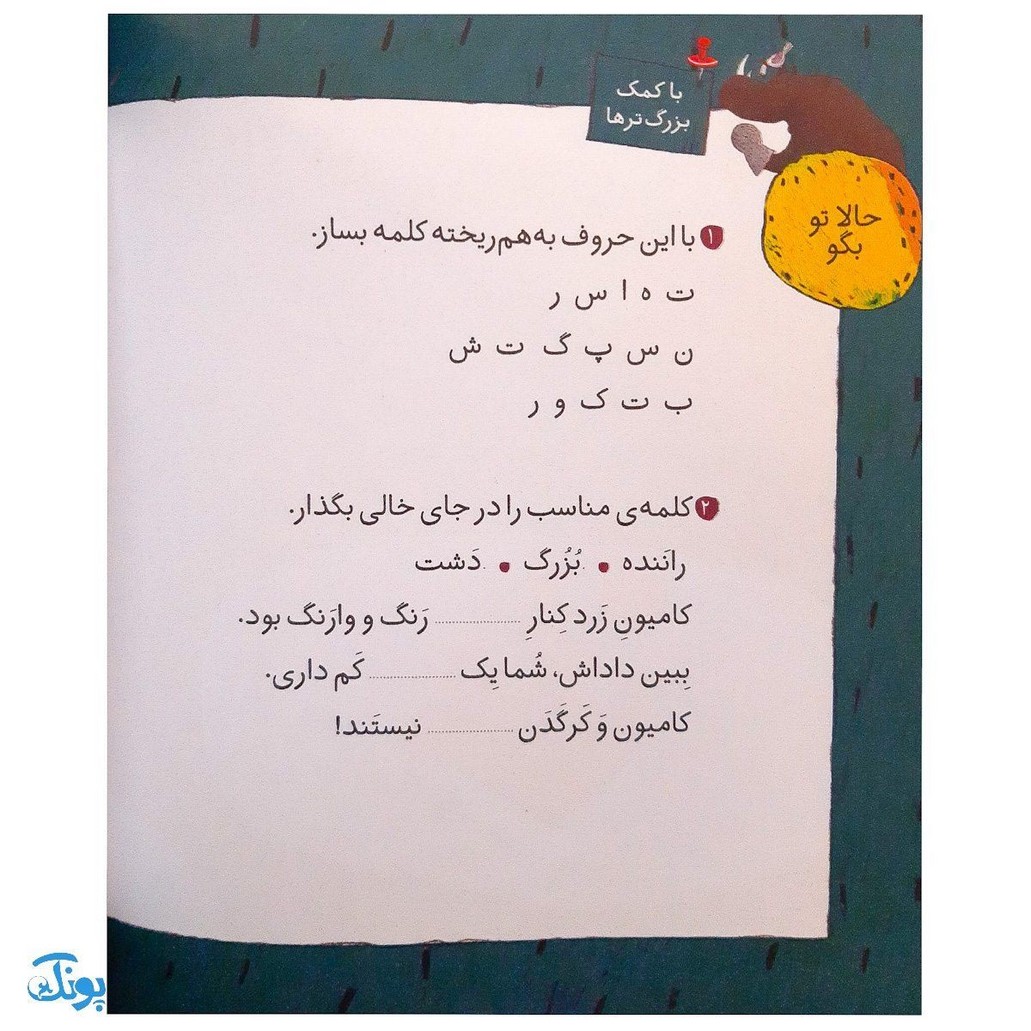 با کمک
بزرگ‌ترها
حالا تو
بگو
۱ با این حروف به‌هم‌ریخته کلمه بساز.
ت ه ا س ر
ن س پ گ ت ش
ب ت ک و ر
۲ کلمه‌ی مناسب را در جای خالی بگذار.
رانَنده • بُزُرگ • دَشت
کامیونِ زَرد کِنارِ .................... رَنگ و وارَنگ بود.
بِبین داداش، شُما یِک .................... کَم داری.
کامیون وَ کَرگَدَن .................... نیستَند!
پونک